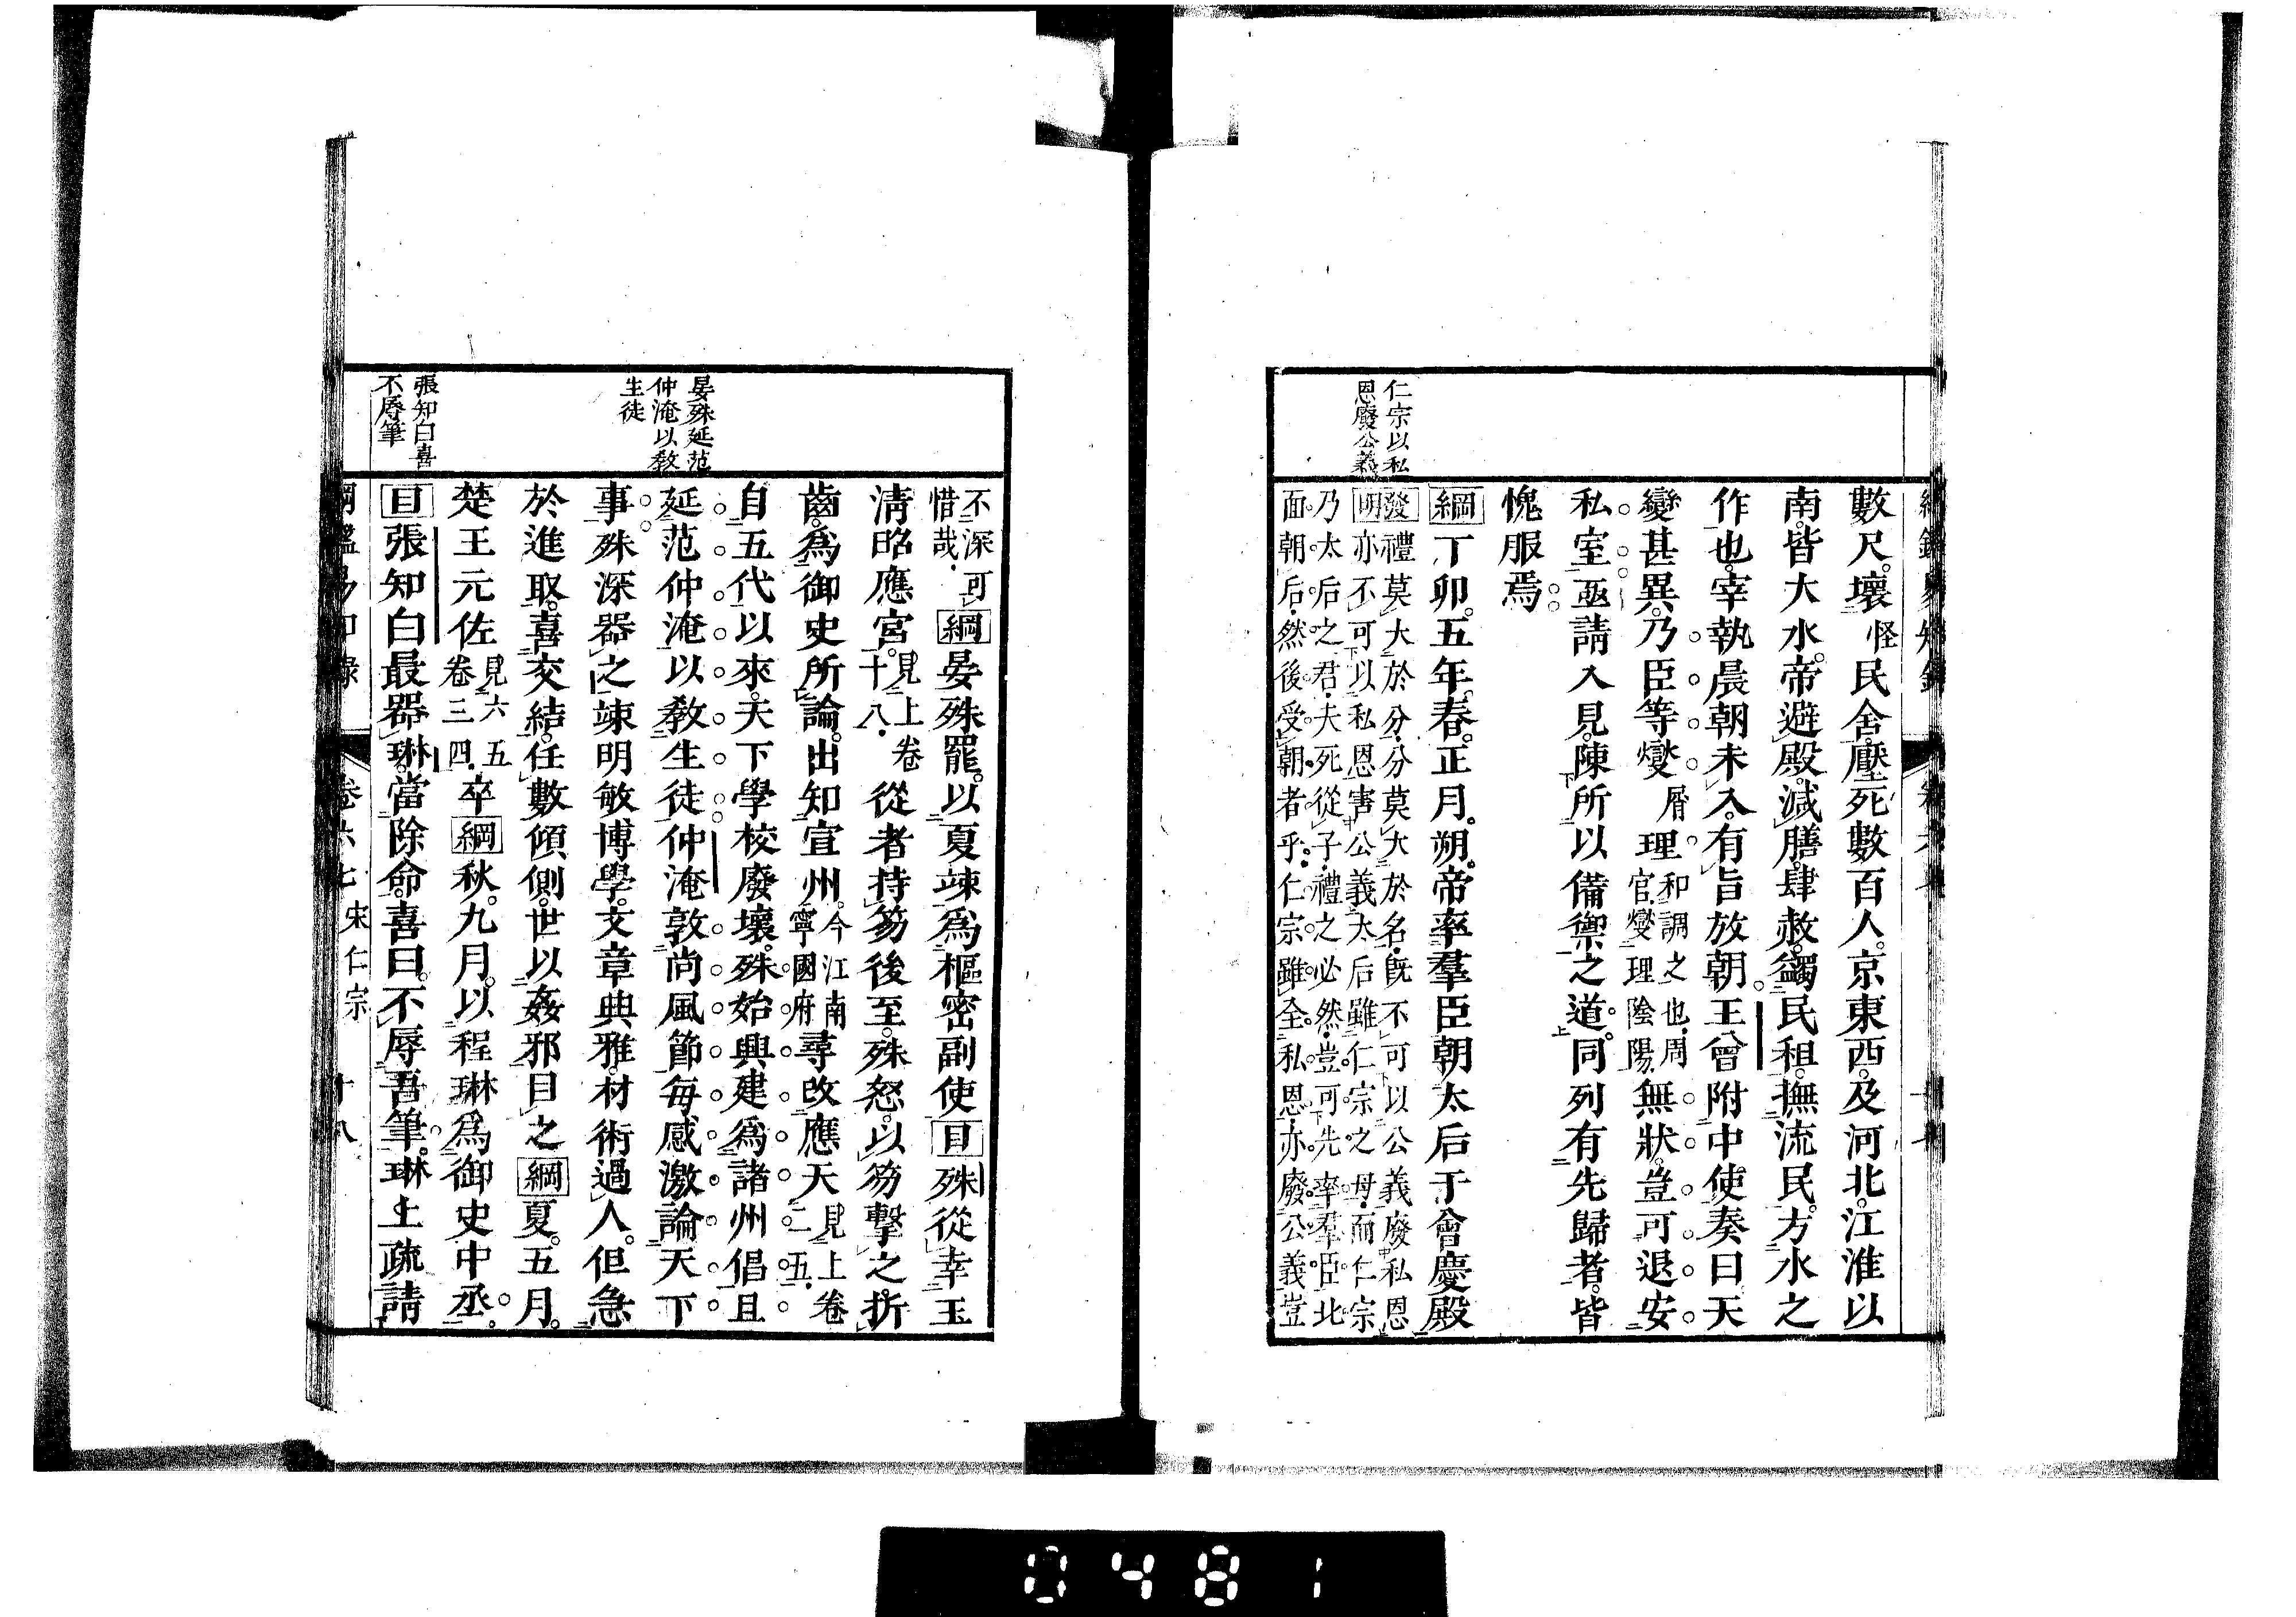 仁宗以私
恩廢公義
數尺壞怪民舍壓死數百人京東西及河北江淮以
南皆大水帝避殿減膳肆赦蠲民租撫流民方水之
作也宰執晨朝未入有旨放朝王曾附中使奏曰天
變甚異乃臣等燮屑理和調之也周官燮理陰陽無狀豈可退安
私室亟請入見陳所以備禦之道同列有先歸者皆
愧服焉
綱丁卯五年春正月朔帝率羣臣朝太后于會慶殿
發明禮莫大於分分莫大於名旣不可以公義廢私恩
亦不可以私恩害公義太后雖仁宗之母而仁宗
乃太后之君夫死從子禮之必然豈可先率羣臣北
面朝后然後受朝者乎仁宗雖全私恩亦廢公義豈
晏殊延范
仲淹以敎
生徒
張知白喜
不辱筆
不深可
惜哉
綱晏殊罷以夏竦爲樞密副使目殊從幸玉
淸昭應宮見上卷十八從者持笏後至殊怒以笏擊之折
齒爲御史所論出知宣州今江南寧國府尋改應天見上卷二五
自五代以來天下學校廢壞殊始興建爲諸州倡且
延范仲淹以敎生徒仲淹敦尚風節每感激論天下
事殊深器之竦明敏博學文章典雅材術過人但急
於進取喜交結任數傾側世以姦邪目之綱夏五月
楚王元佐見六五卷三四卒綱秋九月以程琳爲御史中丞
目張知白最器琳當除命喜曰不辱吾筆琳上疏請
綱鑑易知錄 卷六七 宋仁宗 十八
0481